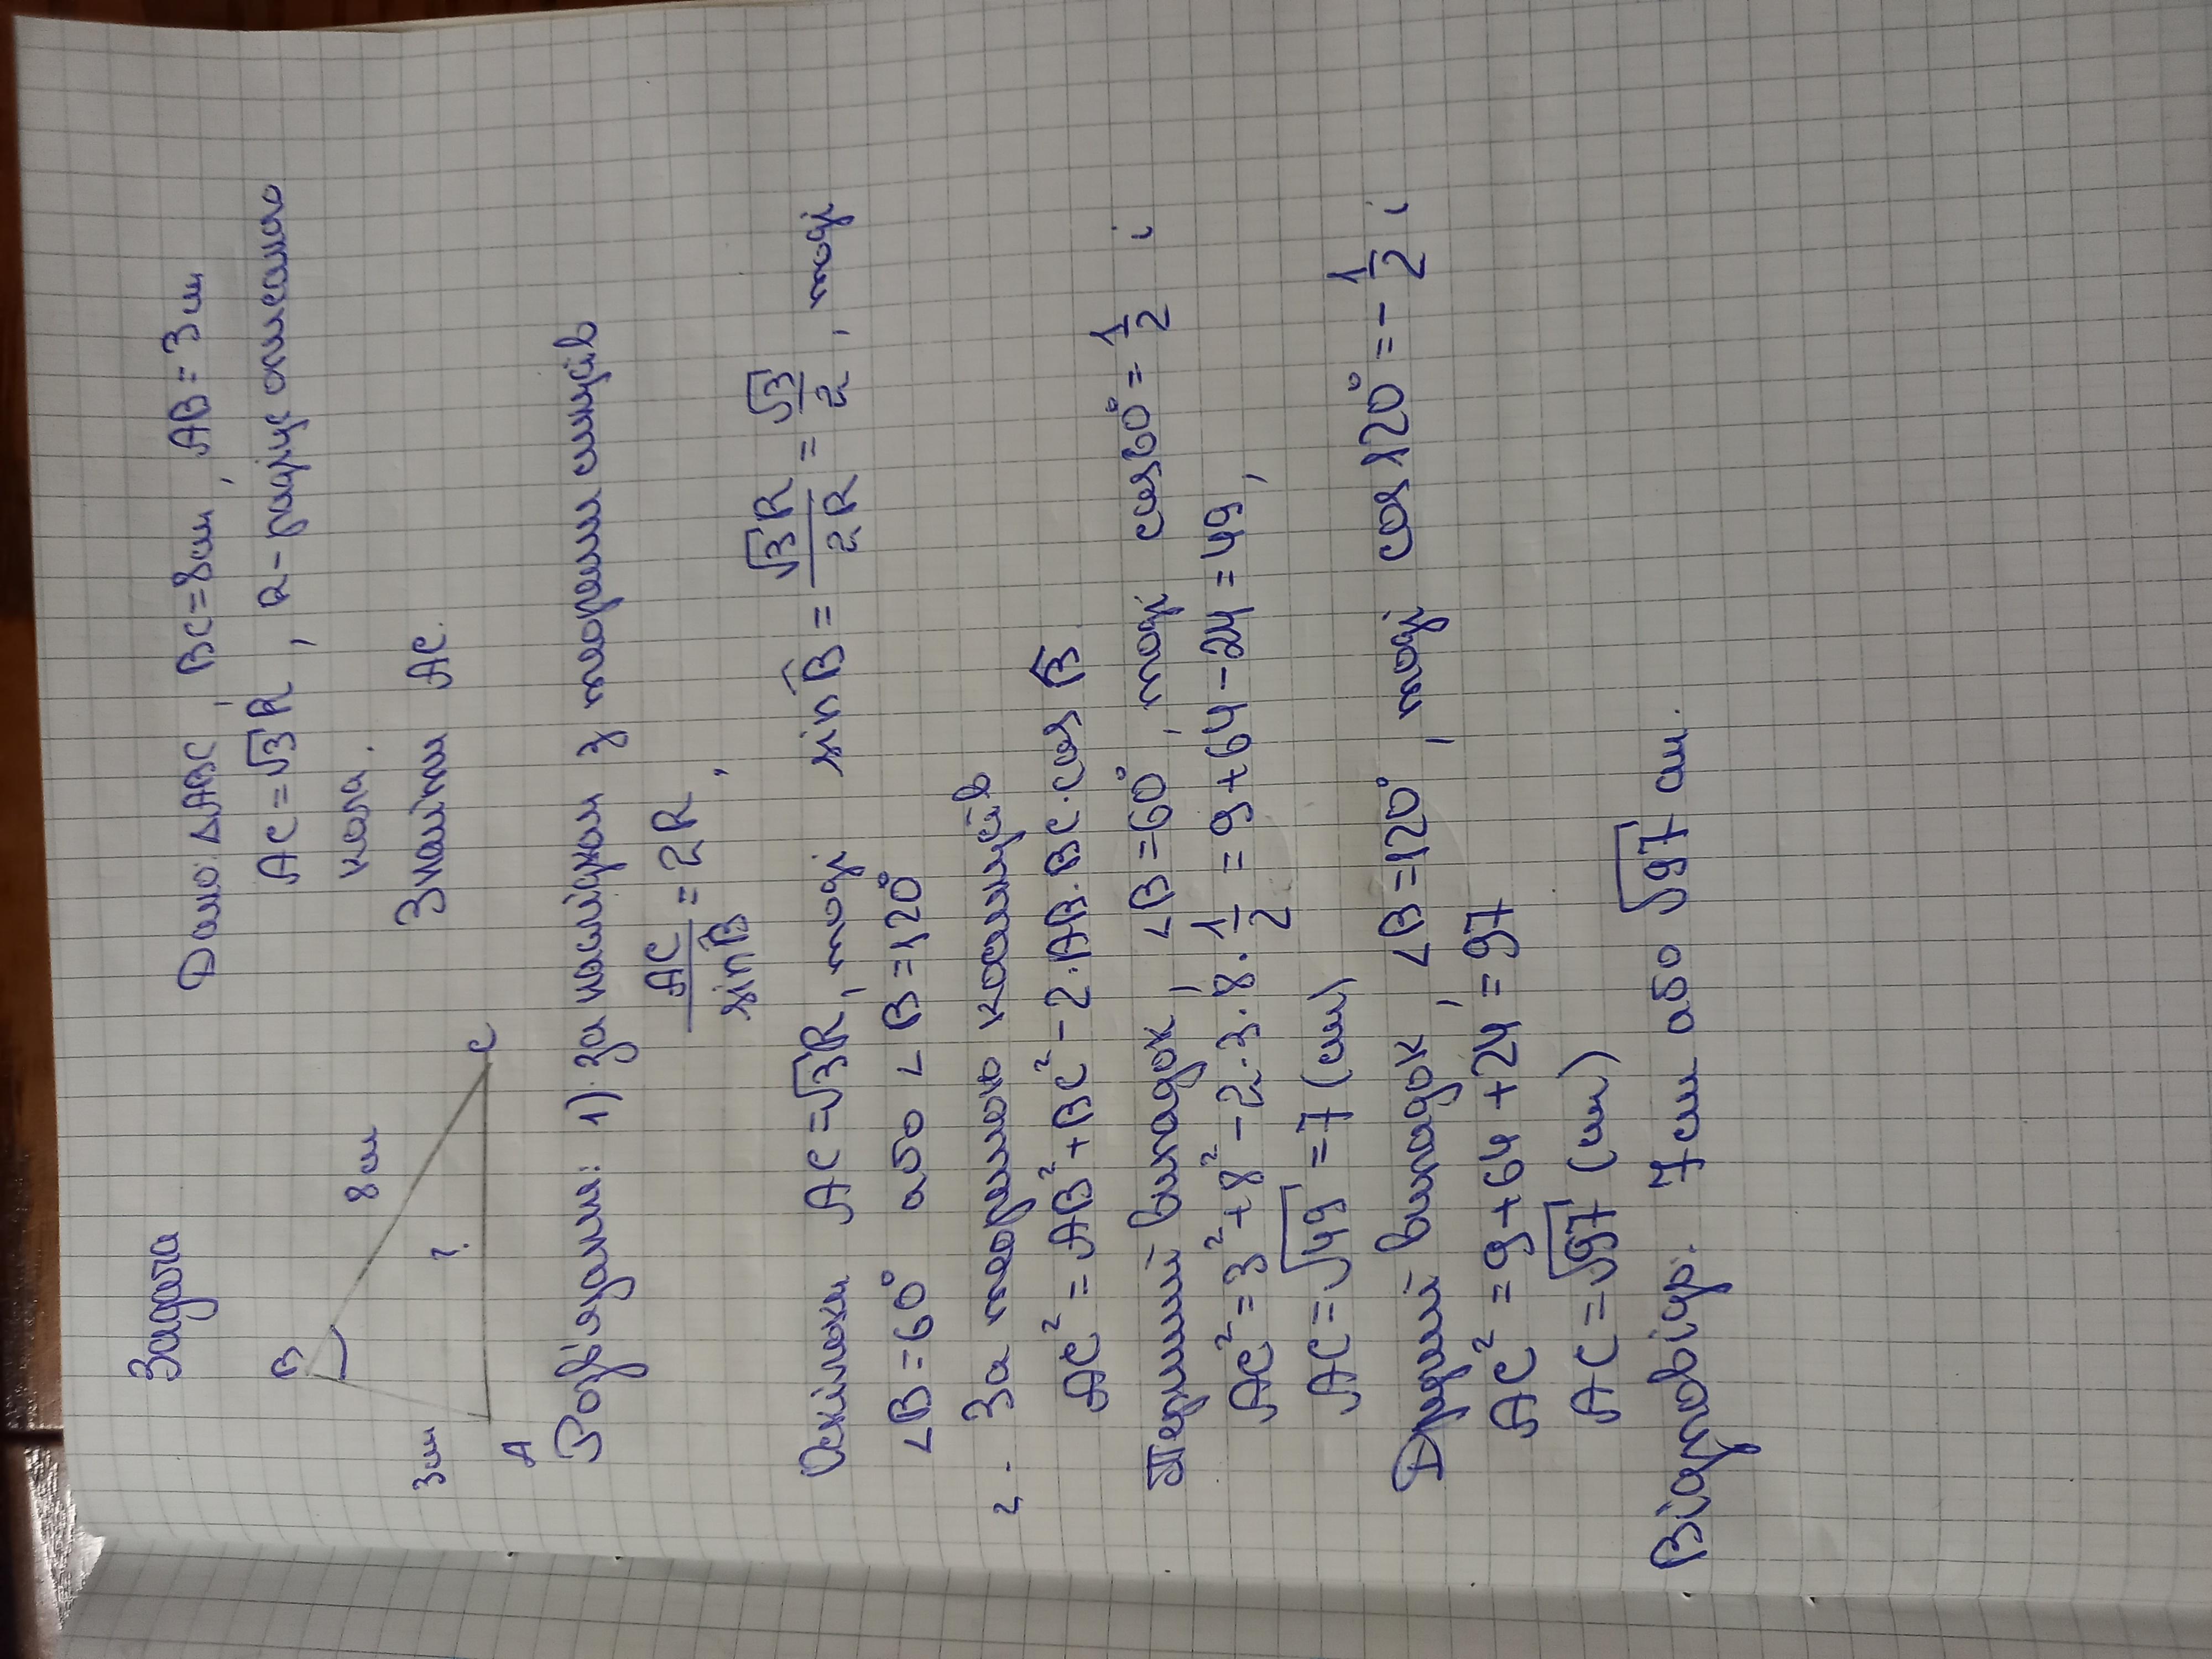 Задача
B
8 см
3 см
?
A
C
Дано: ΔABC, BC=8см, AB=3см
AC=√3R, R-радіус описаного
кола.
Знайти AC.
Розв'язання: 1) за наслідком з теореми синусів
AC/sin B = 2R,
Оскільки AC=√3R, тоді sin B = √3R/2R = √3/2, тоді
∠B=60° або ∠B=120°
2. За теоремою косинусів
AC²=AB²+BC²-2·AB·BC·cos B
Перший випадок, ∠B=60°, тоді cos60°=1/2 і
AC²=3²+8²-2·3·8·1/2=9+64-24=49,
AC=√49=7(см)
Другий випадок, ∠B=120°, тоді cos120°=-1/2 і
AC²=9+64+24=97
AC=√97 (см)
Відповідь. 7см або √97 см.